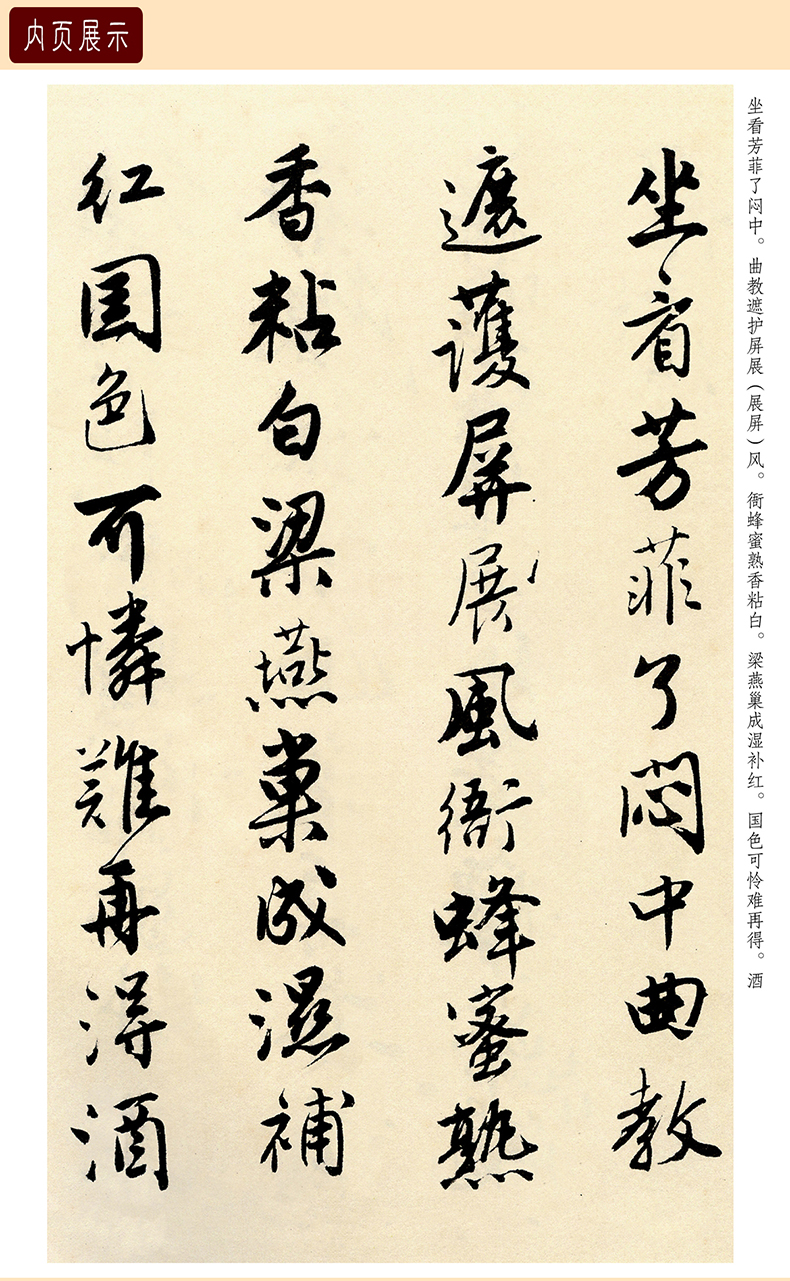 内页展示
坐看芳菲了闷中。曲教遮护屏展（展屏）风。衙蜂蜜熟香粘白。梁燕巢成湿补红。国色可怜难再得。酒
坐看芳菲了悶中曲教
遮護屏展風衙蜂蜜熟
香粘白梁燕巢成濕補
紅国色可憐難再得酒